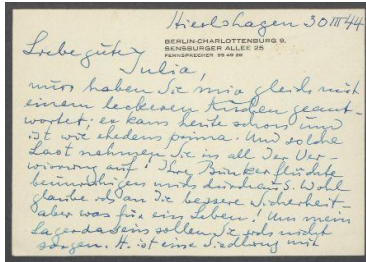 Hierlshagen 30 III 44
BERLIN-CHARLOTTENBURG 9,
SENSBURGER ALLEE 25
FERNSPRECHER 99 49 28
Liebe gute Julia,
nun haben Sie mir gleich mit
einem leckeren Kuchen geant-
wortet; er kam heute schon und
ist wie ehedem prima. Und solche
Last nehmen Sie in all der Ver-
wirrung auf! Ihre Bunkerflüchte
beunruhigen mich durchaus. Wohl
glaube ich an die bessere Sicherheit –
aber was für ein Leben! Um mein
Lagerdasein sollen Sie sich nicht
sorgen. H. ist eine Siedlung mit